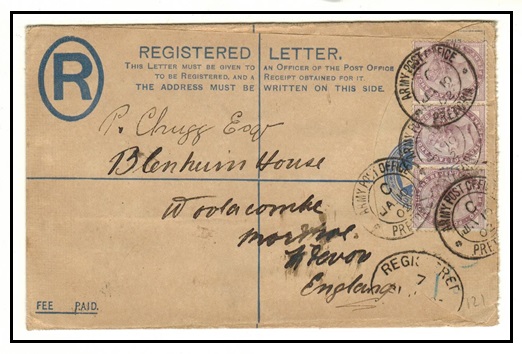 REGISTERED LETTER.
THIS LETTER MUST BE GIVEN TO AN OFFICER OF THE POST OFFICE
TO BE REGISTERED, AND A RECEIPT OBTAINED FOR IT.
THE ADDRESS MUST BE WRITTEN ON THIS SIDE.
R
P. Chugg Esqr
Blenheim House
Woolacombe
Morthoe
N Devon
England
FEE PAID.
ARMY POST OFFICE
C
JA 12
02
PRETORIA
ARMY POST OFFICE
C
JA
PRE
ARMY POST OFFICE
C
JA 12
02
PRET
REGISTERED
7
121